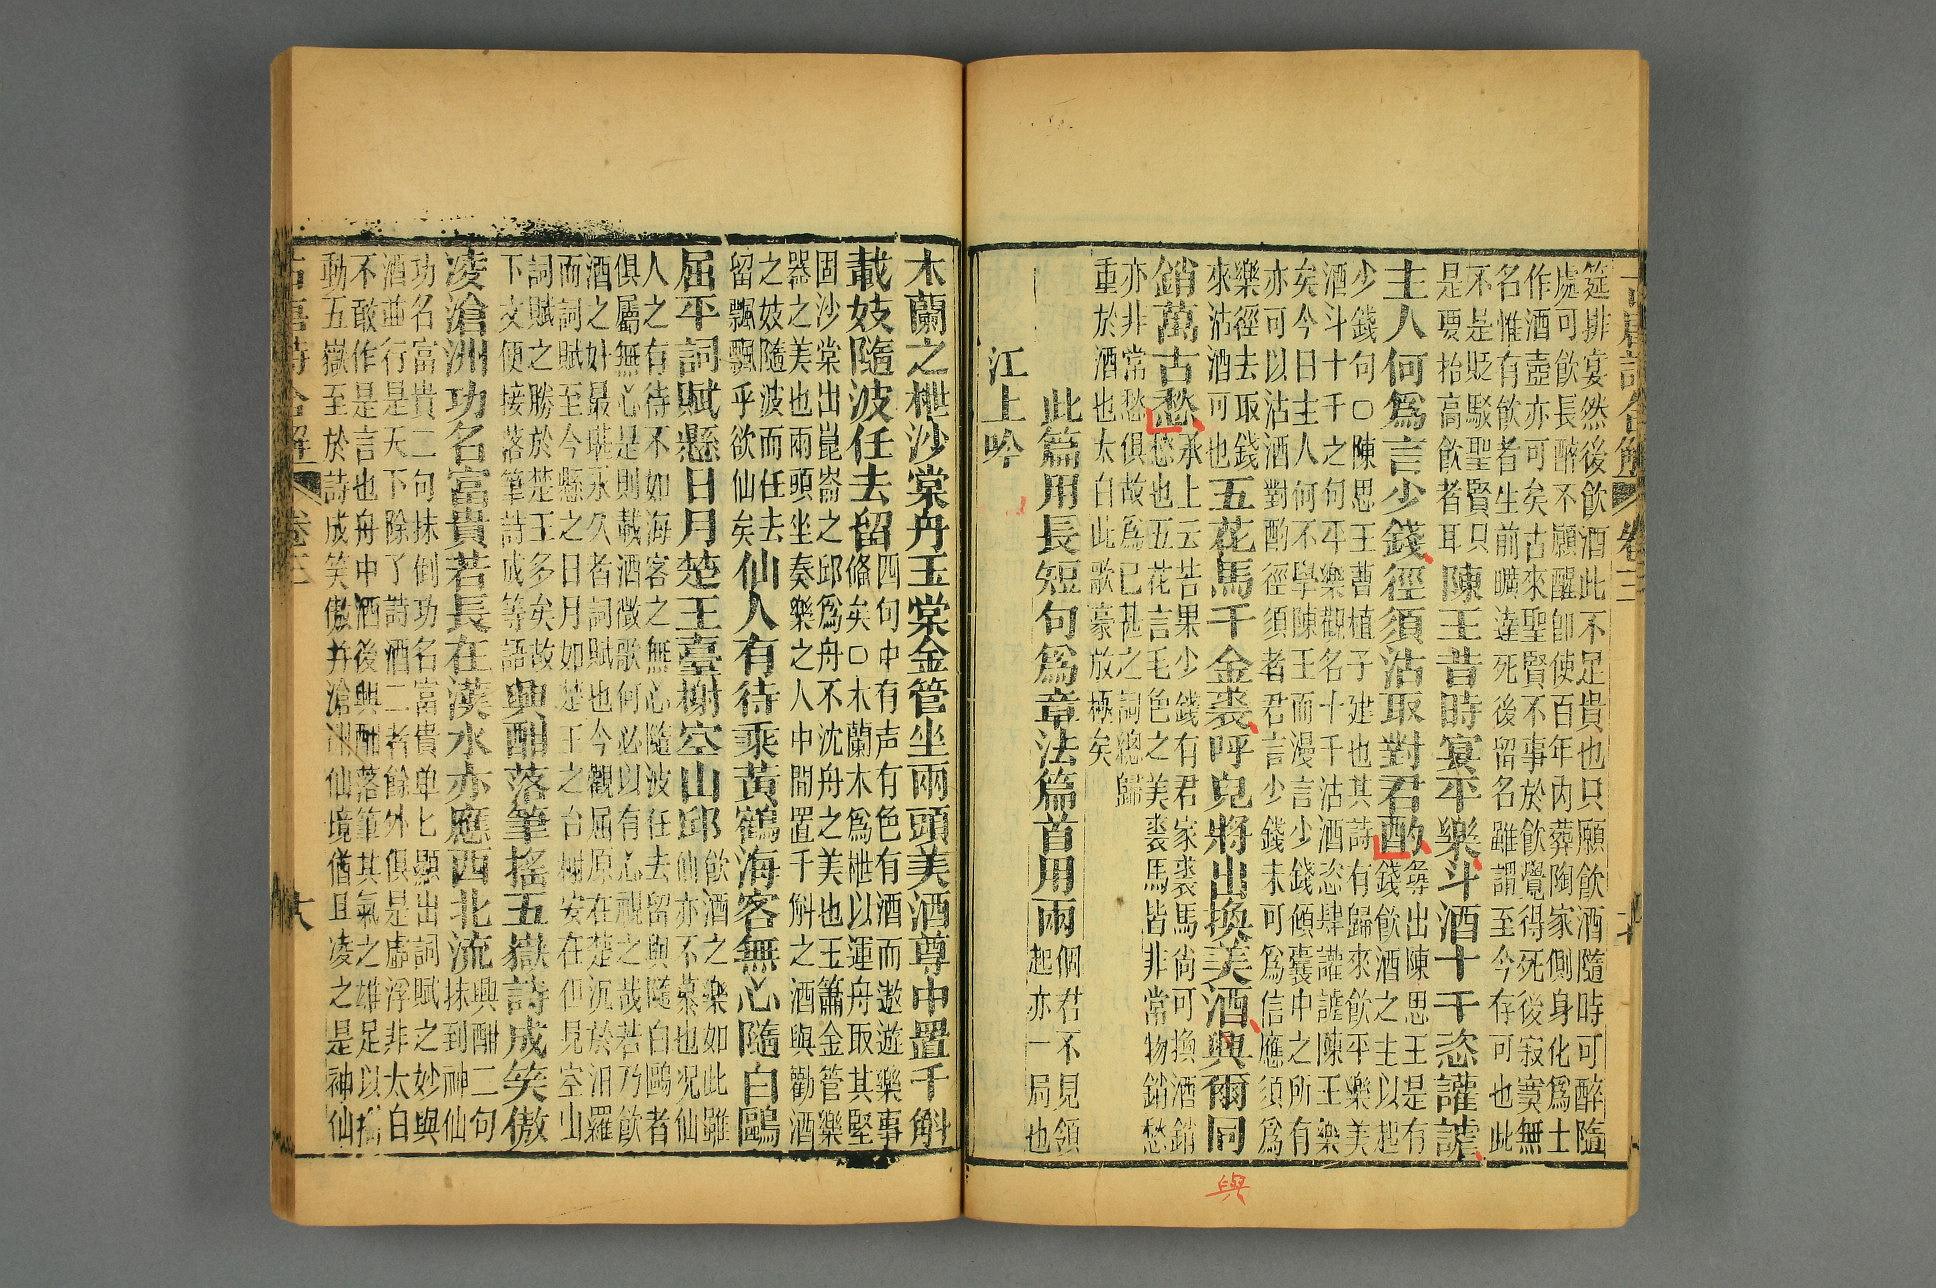 筵排宴然後飲酒此不足貴也只願飲酒隨時可醉隨
處可飲長醉不願醒卽使百年内葬陶家側身化爲士
作酒壺亦可矣古來聖賢不事於飲覺得死後寂寞無
名惟有飲者生前曠達死後留名雖謂至今存可也此
不是貶駁聖賢只
是要抬高飲者耳
陳王昔時宴平樂斗酒十千恣讙謔
主人何爲言少錢徑須沽取對君酌
尋出陳思王是有
錢飲酒之主以起
少錢句○陳思王曹植子建也其詩有歸來飲平樂美
酒斗十千之句平樂觀名十千沽酒恣肆讙謔陳王樂
矣今日主人何不學陳王而漫言少錢傾囊中之所有
亦可以沽酒對酌徑須者君言少錢未可爲信應須爲
樂徑去取錢
來沽酒可也
五花馬千金裘呼兒將出換美酒與爾同
銷萬古愁
承上云若果少錢有君家裘馬尙可換酒銷
愁也五花言毛色之美裘馬皆非常物銷愁
亦非常愁俱故爲已甚之詞總歸
重於酒也太白此歌豪放極矣
此篇用長短句爲章法篇首用兩
個君不見領
起亦一局也
江上吟
與
木蘭之枻沙棠舟玉棠金管坐兩頭美酒尊中置千斛
載妓隨波任去留
四句中有声有色有酒而遨遊樂事
俻矣○木蘭木爲枻以運舟取其堅
固沙棠出崑崙之邱爲舟不沈舟之美也玉簫金管樂
器之美也兩頭坐奏樂之人中間置千斛之酒與勸酒
之妓隨波而任去
留飄飄乎欲仙矣
仙人有待乘黃鶴海客無心隨白鷗
飲酒之樂如此雖
仙亦不慕也况仙
人之有待不如海客之無心隨波任去留與隨白鷗者
俱屬無心是則載酒徵歌何必以有心視之哉若乃飲
屈平詞賦懸日月楚王臺榭空山邱
酒之妙最堪永久者詞賦也今觀屈原在楚沉於汨羅
而詞賦至今懸之日月如楚王之台榭安在但見空山
詞賦之勝於楚王多矣故
下文便接落筆詩成等語
興酣落筆搖五嶽詩成笑傲
凌滄洲功名富貴若長在漢水亦應西北流
興酣二句
抹到神仙
功名富貴二句抹倒功名富貴单匕顯出詞賦之妙與
酒並行是天下除了詩酒二者餘外俱是虛浮非太白
不敢作是言也舟中酒後興酣落筆其氣之雄足以搖
動五嶽至於詩成笑傲并滄洲仙境猶且凌之是神仙
古唐詩合解
卷三
十八